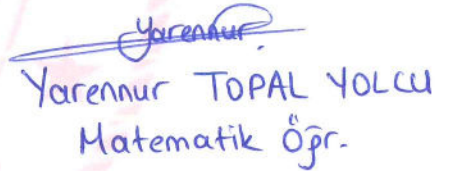 Yarennur
Yarennur TOPAL YOLCU
Matematik Öğr.